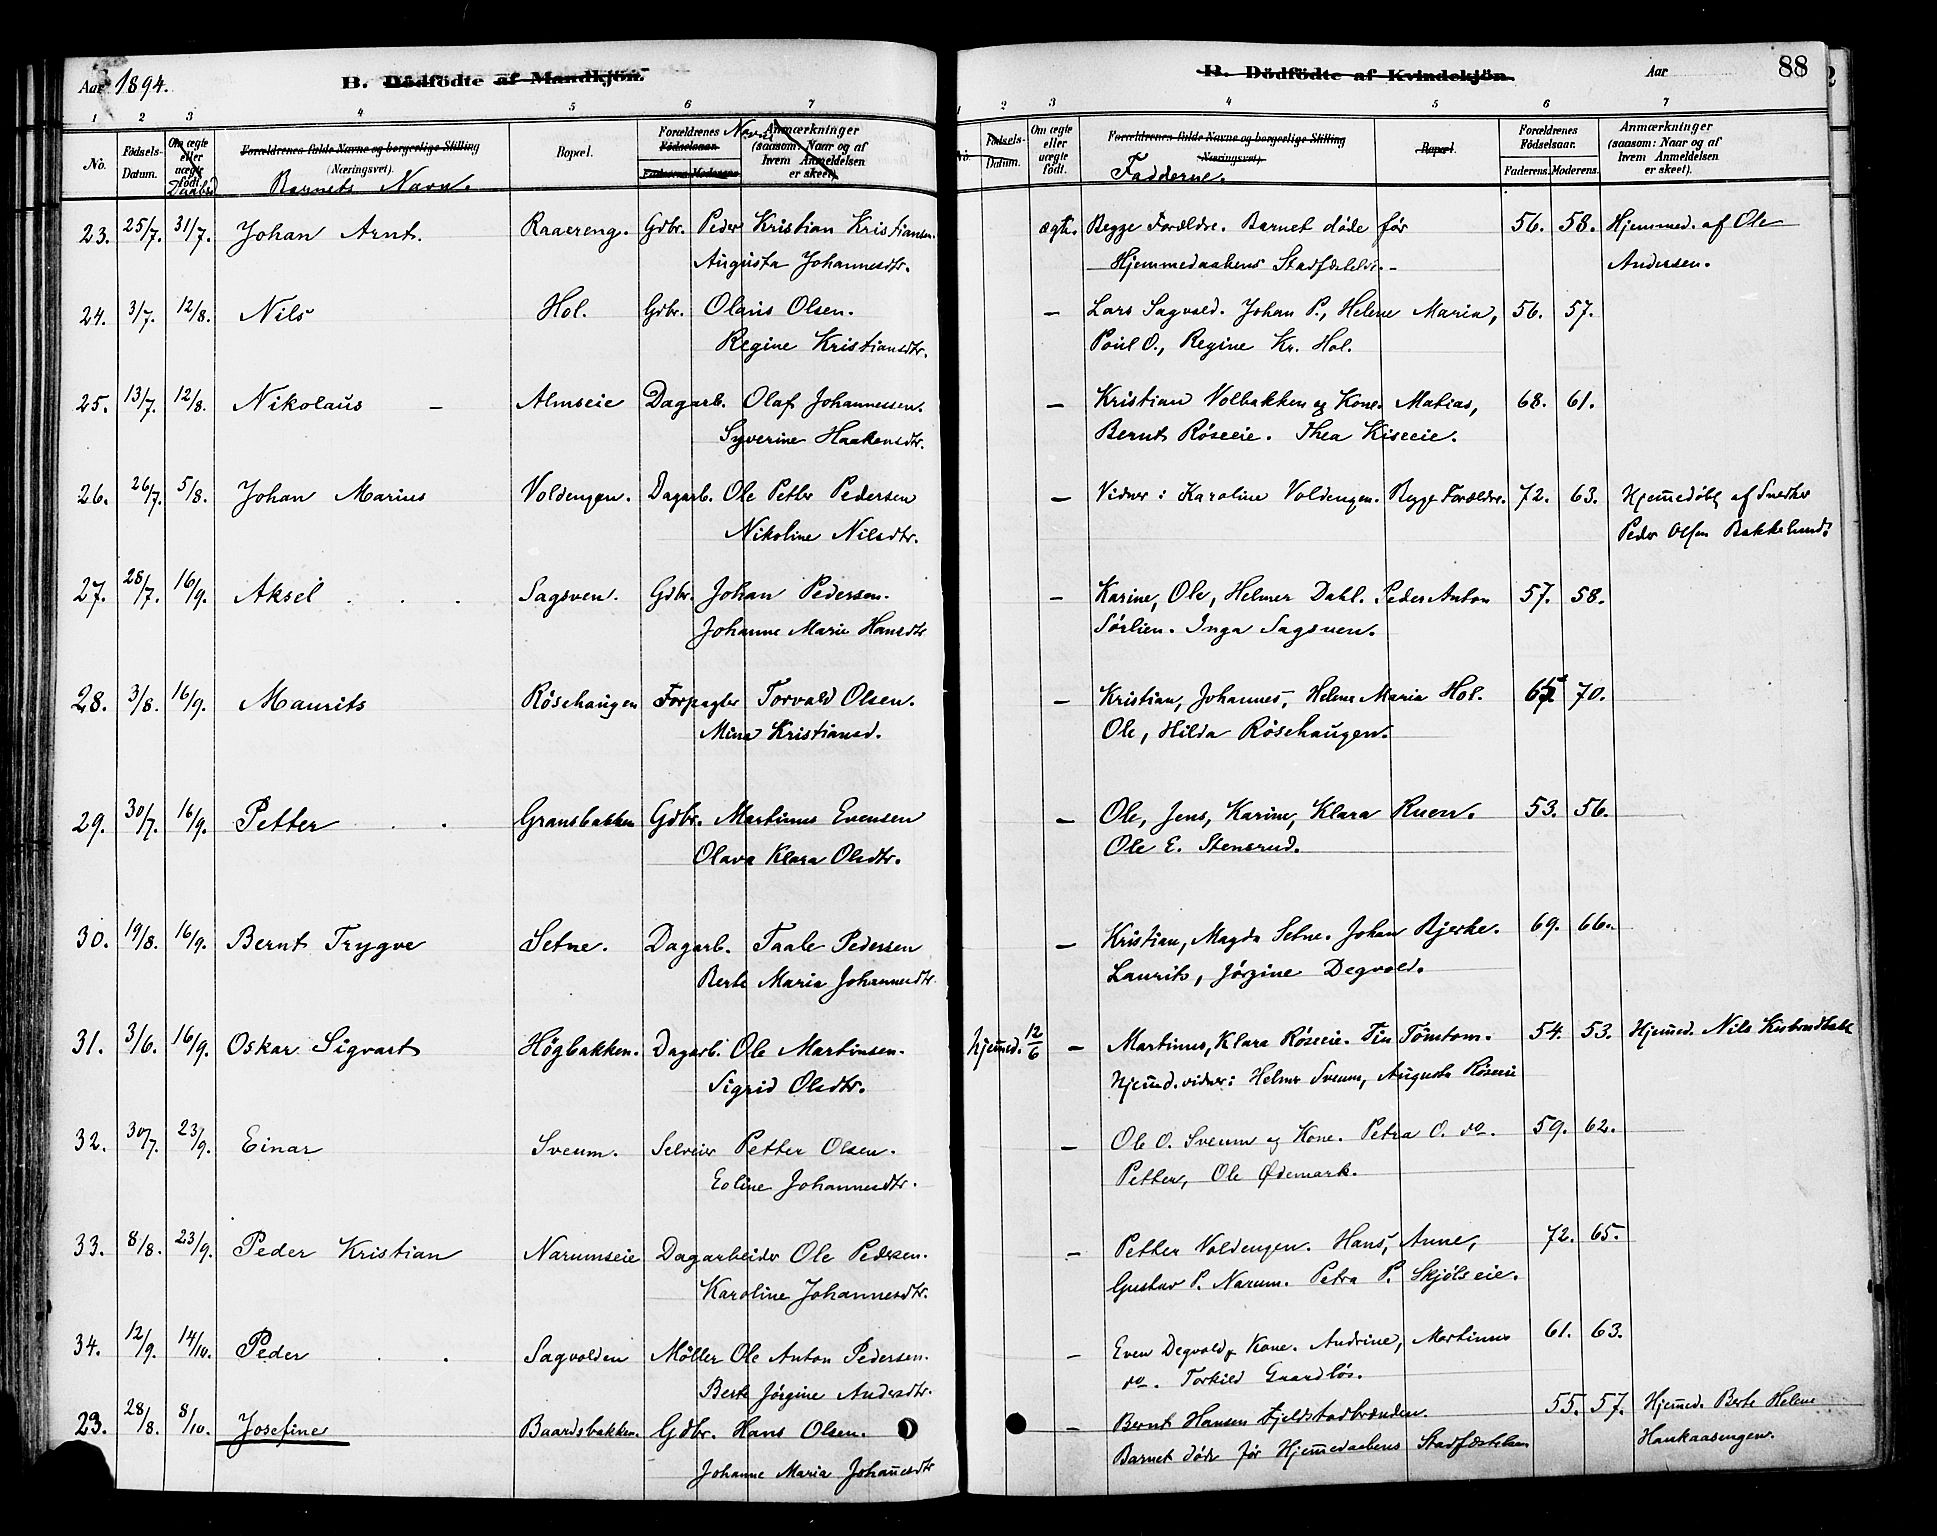 Aar 1894. B. Dødfödte af Mandkjön.
1 2 3 4 5 6 7
No. Födsels-Datum. Om ægte eller uægte född. Daabsd Forældrenes fulde Navne og borgerlige Stilling (Næringsvei). Barnets Navn. Bopæl. Forældrenes Födselsaar. Navne Faderens. Moderens. Anmærkninger (saasom: Naar og af hvem Anmeldelsen er skeet).
23. 25/7. 31/7. Johan Arnt. Raaereng. Gdbr. Peder Kristian Kristiansen.
Augusta Johannesdtr.
24. 3/7. 12/8. Nils Hol. Gdbr. Olaus Olsen.
Regine Kristiansdtr.
25. 13/7. 12/8. Nikolaus – Almseie Dagarb. Olaf Johannessen.
Syverine Haakensdtr.
26. 26/7. 5/8. Johan Marius Voldengen. Dagarb. Ole Petter Pedersen
Nikoline Nilsdtr.
27. 28/7. 16/9. Aksel . . . Sagsven. Gdbr. Johan Pedersen.
Johanne Marie Hansdtr
28. 3/8. 16/9. Maurits Rösehaugen Forpagter Torvald Olsen.
Mina Kristiansd.
29. 30/7. 16/9. Petter . . Gransbakken Gdbr. Martinus Evensen
Olava Klara Olsdtr.
30. 19/8. 16/9. Bernt Trygve Setne. Dagarb. Taale Pedersen
Berte Maria Johannesdtr.
31. 3/6. 16/9. Oskar Sigvart Högbakken. Dagarb. Ole Martinsen.
Sigrid Olsdtr.
32. 30/7. 23/9. Einar Sveum. Selveier Petter Olsen.
Eoline Johannesdtr.
33. 8/8. 23/9. Peder Kristian Narumseie Dagarbeider Ole Pedersen.
Karoline Johannesdtr.
34. 12/9. 14/10. Peder . . Sagvolden Møller Ole Anton Pedersen.
Berte Jörgine Andersdtr.
23. 28/8. 8/10. Josefine Baardsbakken. Gdbr. Hans Olsen.
Johanne Maria Johannesdtr
B. Dödfödte af Kvindekjön. Aar 88
1 2 3 4 5 6 7
No. Födsels-Datum. Om ægte eller uægte födt. Forældrenes fulde Navne og borgerlige Stilling (Næringsvei). Fadderne. Bopæl. Forældrenes Födselsaar. Faderens. Moderens. Anmærkninger (saasom: Naar og af hvem Anmeldelsen er skeet).
ægte. Begge Forældre. Barnet døde før 56. 58. Hjemmed. af Ole
Hjemmedaabens Stadfæstelse. – Andersen.
– Lars Sagvold. Johan P., Helene Maria, 56. 57.
Poul O., Regine Kr. Hol.
– Kristian Volbakken og Kone. Matias, 68. 61.
Bernt Röseeie. Thea Kiseeie.
– Vidner: Karoline Voldengen. Begge Forældre. 72. 63. Hjemmedøbt af Snedker
Peder Olsen Bakkelund.
– Karine, Ole, Helmer Dahl. Peder Anton 57. 58.
Sörlien. Inga Sagsven.
– Kristian, Johannes, Helene Maria Hol. 70.
Ole, Hilda Rösehaugen.
– Ole, Jens, Karine, Klara Ruen. 53. 56.
Ole E. Stensrud.
– Kristian, Magda Setne. Johan Bjerke. 69. 66.
Laurits, Jörgine Degvold.
hjemmed. 12/6 – Martinus, Klara Röseeie. Tomtom. 54. 53. Hjemmed. Nils
Hjemmd. vidner: Helmer Sveum, Augusta Röseeie
– Ole O. Sveum og Kone. Petra O. do. 59. 62.
Petter, Ole Ødemark.
– Petter Voldengen. Hans, Anne, 72. 65.
Gustav P. Narum. Petra P. Skjölseie.
– Even Degvold, Kone. Andrine, Martinus 61. 63.
do. Torkild Gaardløs.
– Bernt Hansen Fjeldstadbrænden. 55. 57. Hjemmed. Berte Helene
Barnet døde før Hjemmedaabens Stadfæstelsen Haukaasengen.